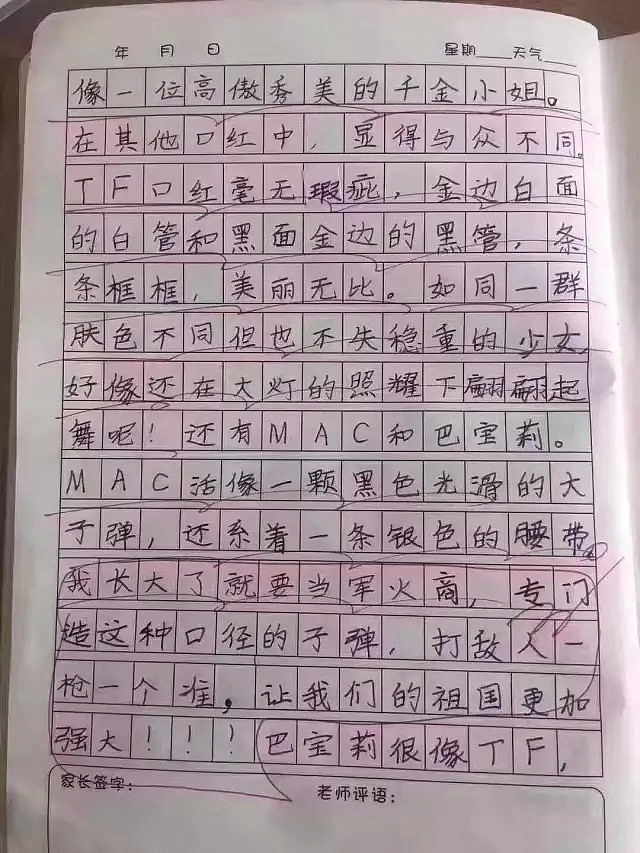 年 月 日 星期 天气
像一位高傲秀美的千金小姐。
在其他口红中，显得与众不同。
TF口红毫无瑕疵，金边白面
的白管和黑面金边的黑管，条
条框框，美丽无比。如同一群
肤色不同但也不失稳重的少女，
好像还在大灯的照耀下翩翩起
舞呢！还有MAC和巴宝莉。
MAC活像一颗黑色光滑的大
子弹，还系着一条银色的腰带。
我长大了就要当军火商，专门
造这种口径的子弹，打敌人一
枪一个准，让我们的祖国更加
强大！！！巴宝莉很像TF，
家长签字： 老师评语：